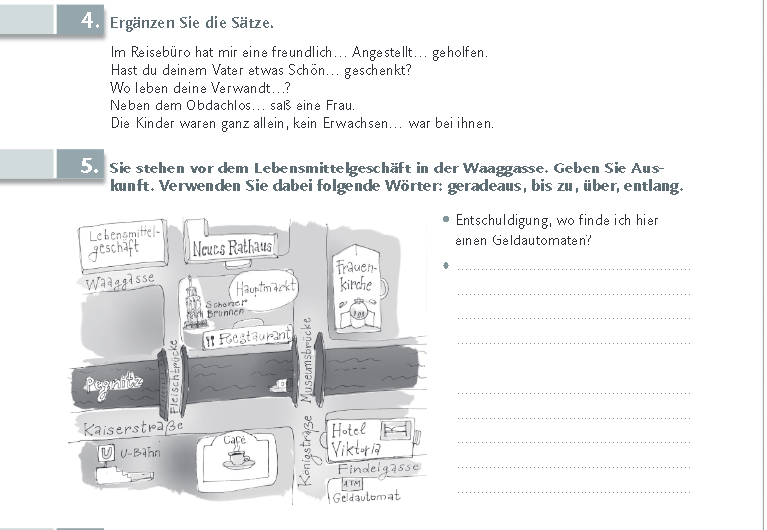 4. Ergänzen Sie die Sätze.
Im Reisebüro hat mir eine freundlich… Angestellt… geholfen.
Hast du deinem Vater etwas Schön… geschenkt?
Wo leben deine Verwandt…?
Neben dem Obdachlos… saß eine Frau.
Die Kinder waren ganz allein, kein Erwachsen… war bei ihnen.
5. Sie stehen vor dem Lebensmittelgeschäft in der Waaggasse. Geben Sie Aus-
kunft. Verwenden Sie dabei folgende Wörter: geradeaus, bis zu, über, entlang.
Entschuldigung, wo finde ich hier
einen Geldautomaten?
Lebensmittel-
geschäft
Neues Rathaus
Waaggasse
Frauen-
kirche
Hauptmarkt
Schöner
Brunnen
Restaurant
Fleischbrücke
Museumsbrücke
Pegnitz
Kaiserstraße
Café
U
U-Bahn
Königstraße
Hotel
Viktoria
Findelgasse
ATM
Geldautomat